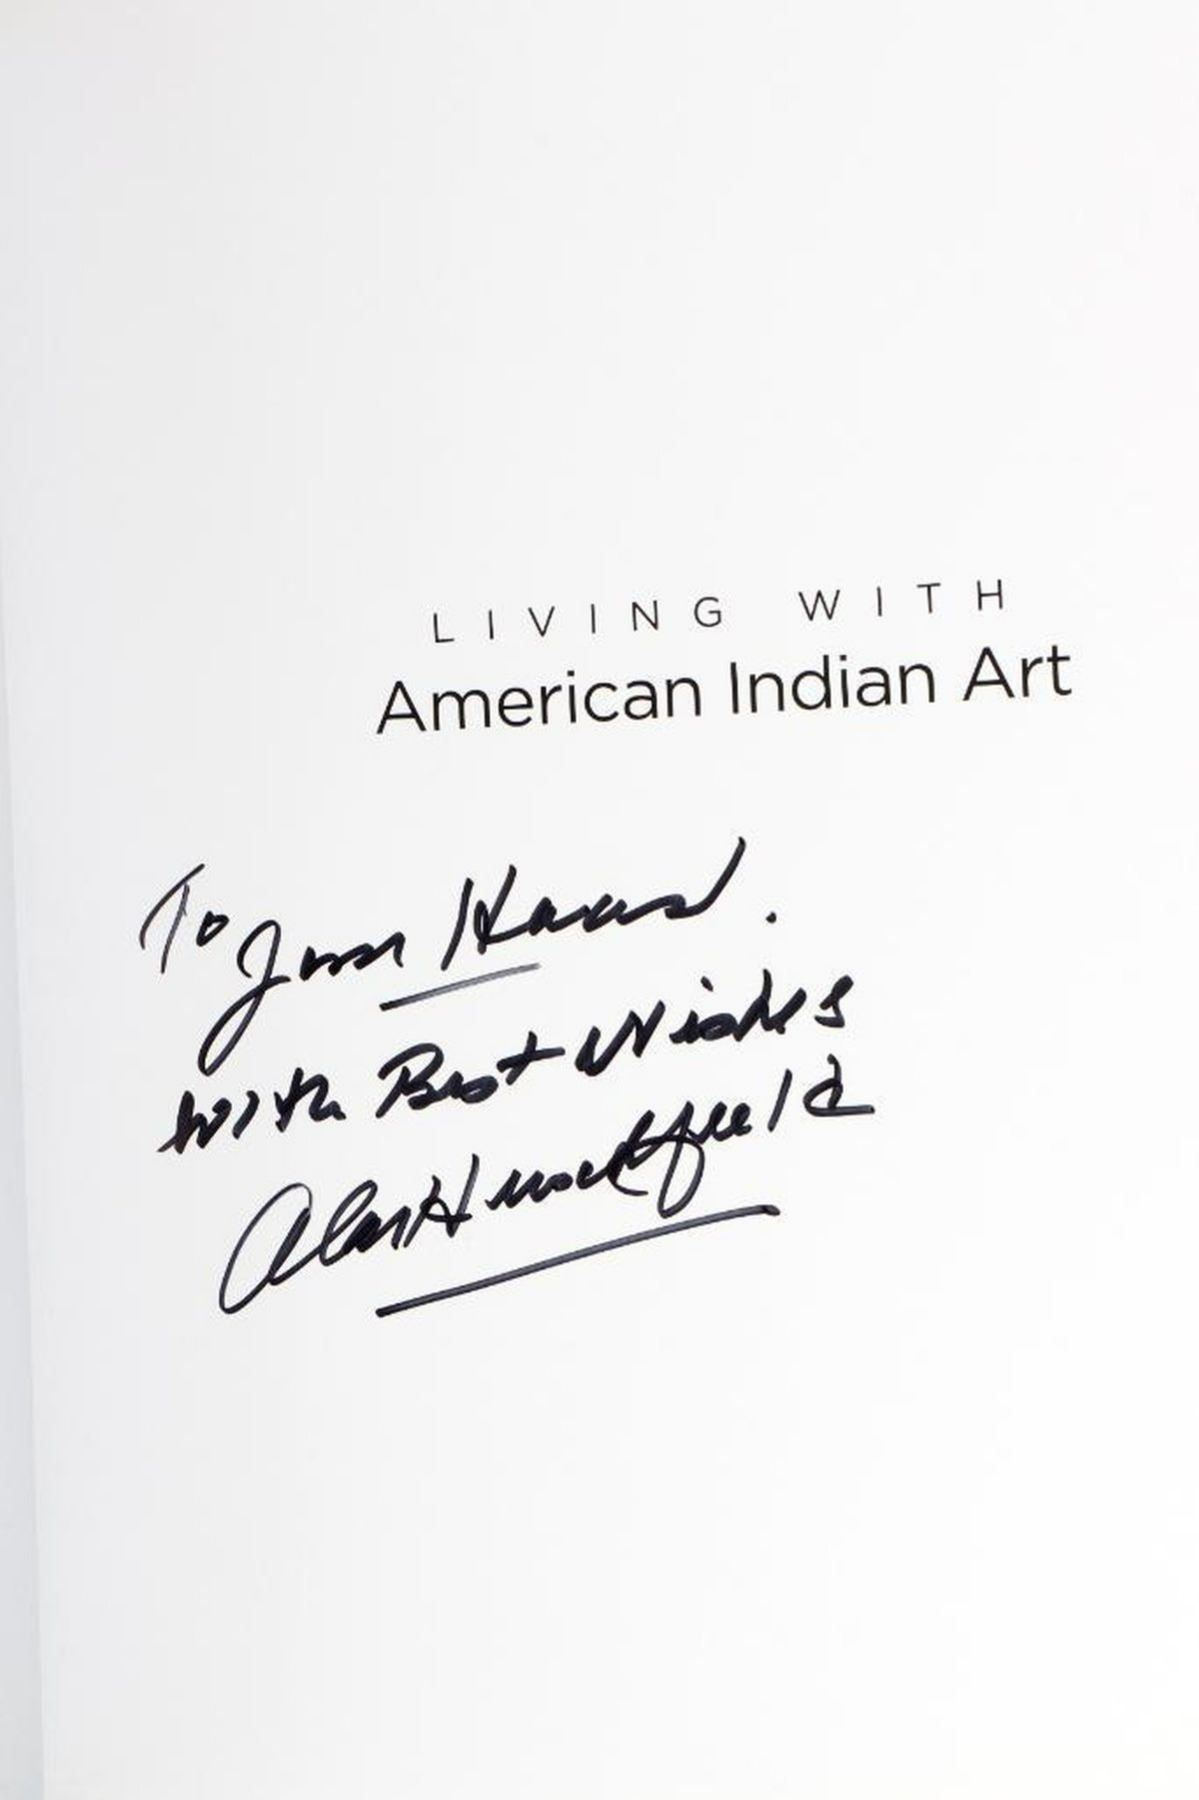 LIVING WITH
American Indian Art
To
With Best Wishes
Alan Hirschfield